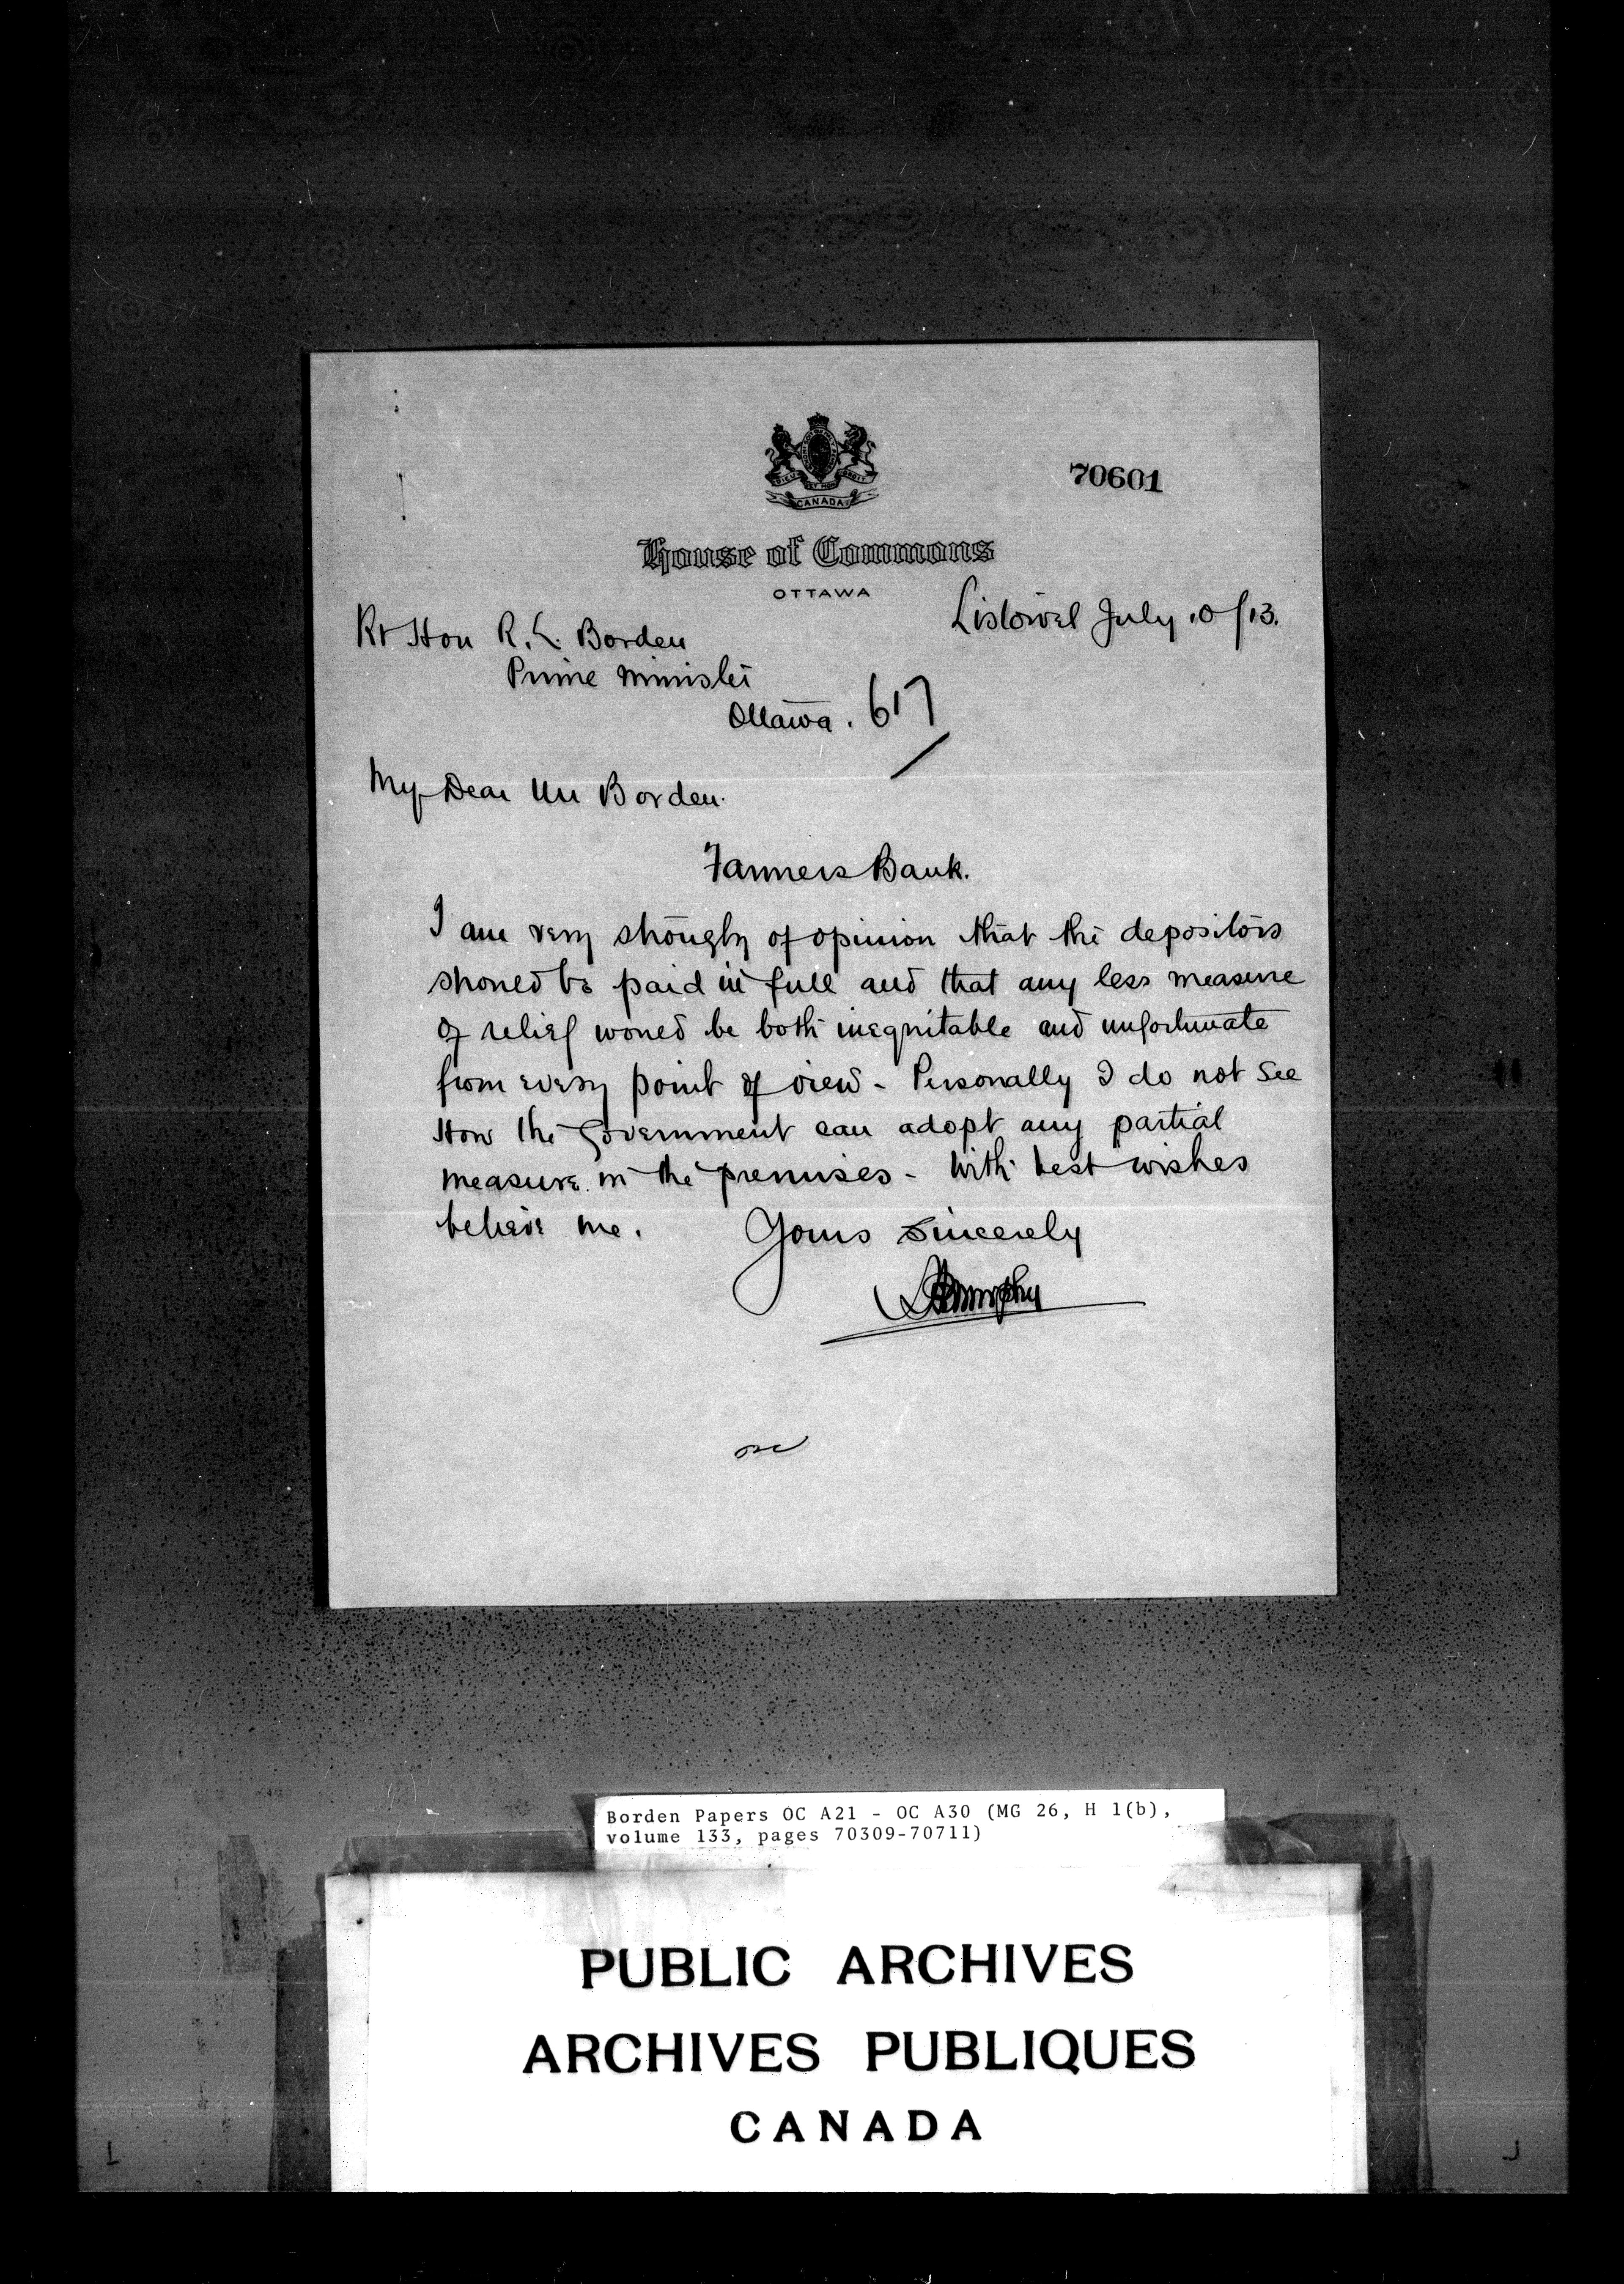 DIEU ET MON DROIT
CANADA
70601
House of Commons
OTTAWA
Listowel July 10/13.
Rt Hon R. L. Borden
Prime Minister
Ottawa. 617
My Dear Mr Borden.
Farmers Bank.
I am very strongly of opinion that the depositors
should be paid in full and that any less measure
of relief would be both inequitable and unfortunate
from every point of view - Personally I do not see
How the Government can adopt any partial
measure in the premises - With best wishes
believe me. Yours Sincerely
Murphy
Borden Papers OC A21 - OC A30 (MG 26, H 1(b),
volume 133, pages 70309-70711)
PUBLIC ARCHIVES
ARCHIVES PUBLIQUES
CANADA